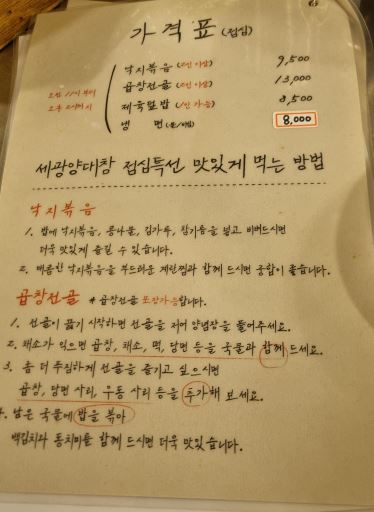 가격표 (점심)
낙지볶음 (2인 이상) 9,500
오전 11시 부터
곱창전골 (2인 이상) 13,000
오후 2시까지
제육덮밥 (1인 가능) 8,500
냉면 (물/비빔) 8,000
세광양대창 점심특선 맛있게 먹는 방법
낙지볶음
1. 밥에 낙지볶음, 콩나물, 김가루, 참기름을 넣고 비벼드시면
더욱 맛있게 즐길 수 있습니다.
2. 매콤한 낙지볶음을 부드러운 계란찜과 함께 드시면 궁합이 좋습니다.
곱창전골 * 곱창전골 포장가능합니다.
1. 전골이 끓기 시작하면 전골을 저어 양념장을 풀어주세요.
2. 채소가 익으면 곱창, 채소, 떡, 당면 등을 국물과 함께 드세요.
3. 좀 더 푸짐하게 전골을 즐기고 싶으시면
곱창, 당면 사리, 우동 사리 등을 추가해 보세요.
남은 국물에 밥을 볶아
백김치와 동치미를 함께 드시면 더욱 맛있습니다.